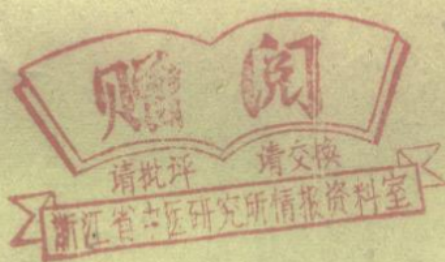 赠阅
请批评 请交换
浙江省中医研究所情报资料室